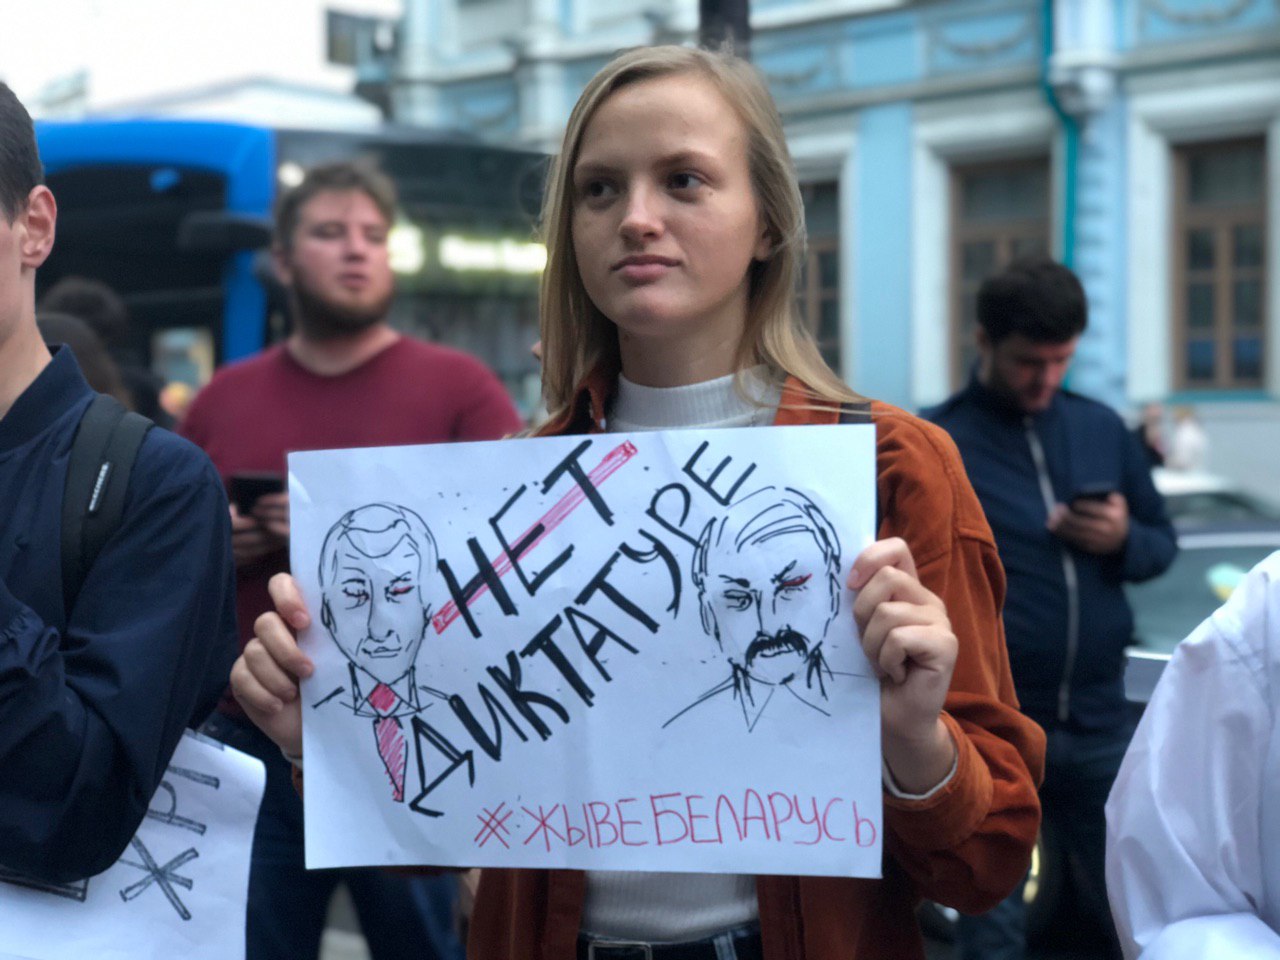 НЕТ
ДИКТАТУРЕ
#ЖЫВЕБЕЛАРУСЬ